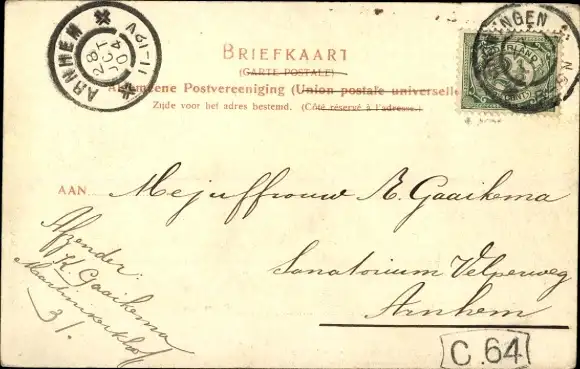 ARNHEM
28 OCT 04
11-12V
NINGEN
NEDERLAND
BRIEFKAART
(CARTE POSTALE)
Algemeene Postvereeniging (Union postale universelle
Zijde voor het adres bestemd. (Côté réservé à l'adresse.)
AAN
Mejuffrouw A. Gaaikema
Sanatorium Velperweg
Arnhem
Afzender:
K. Gaaikema
Martinikerkhof
31.
C. 64